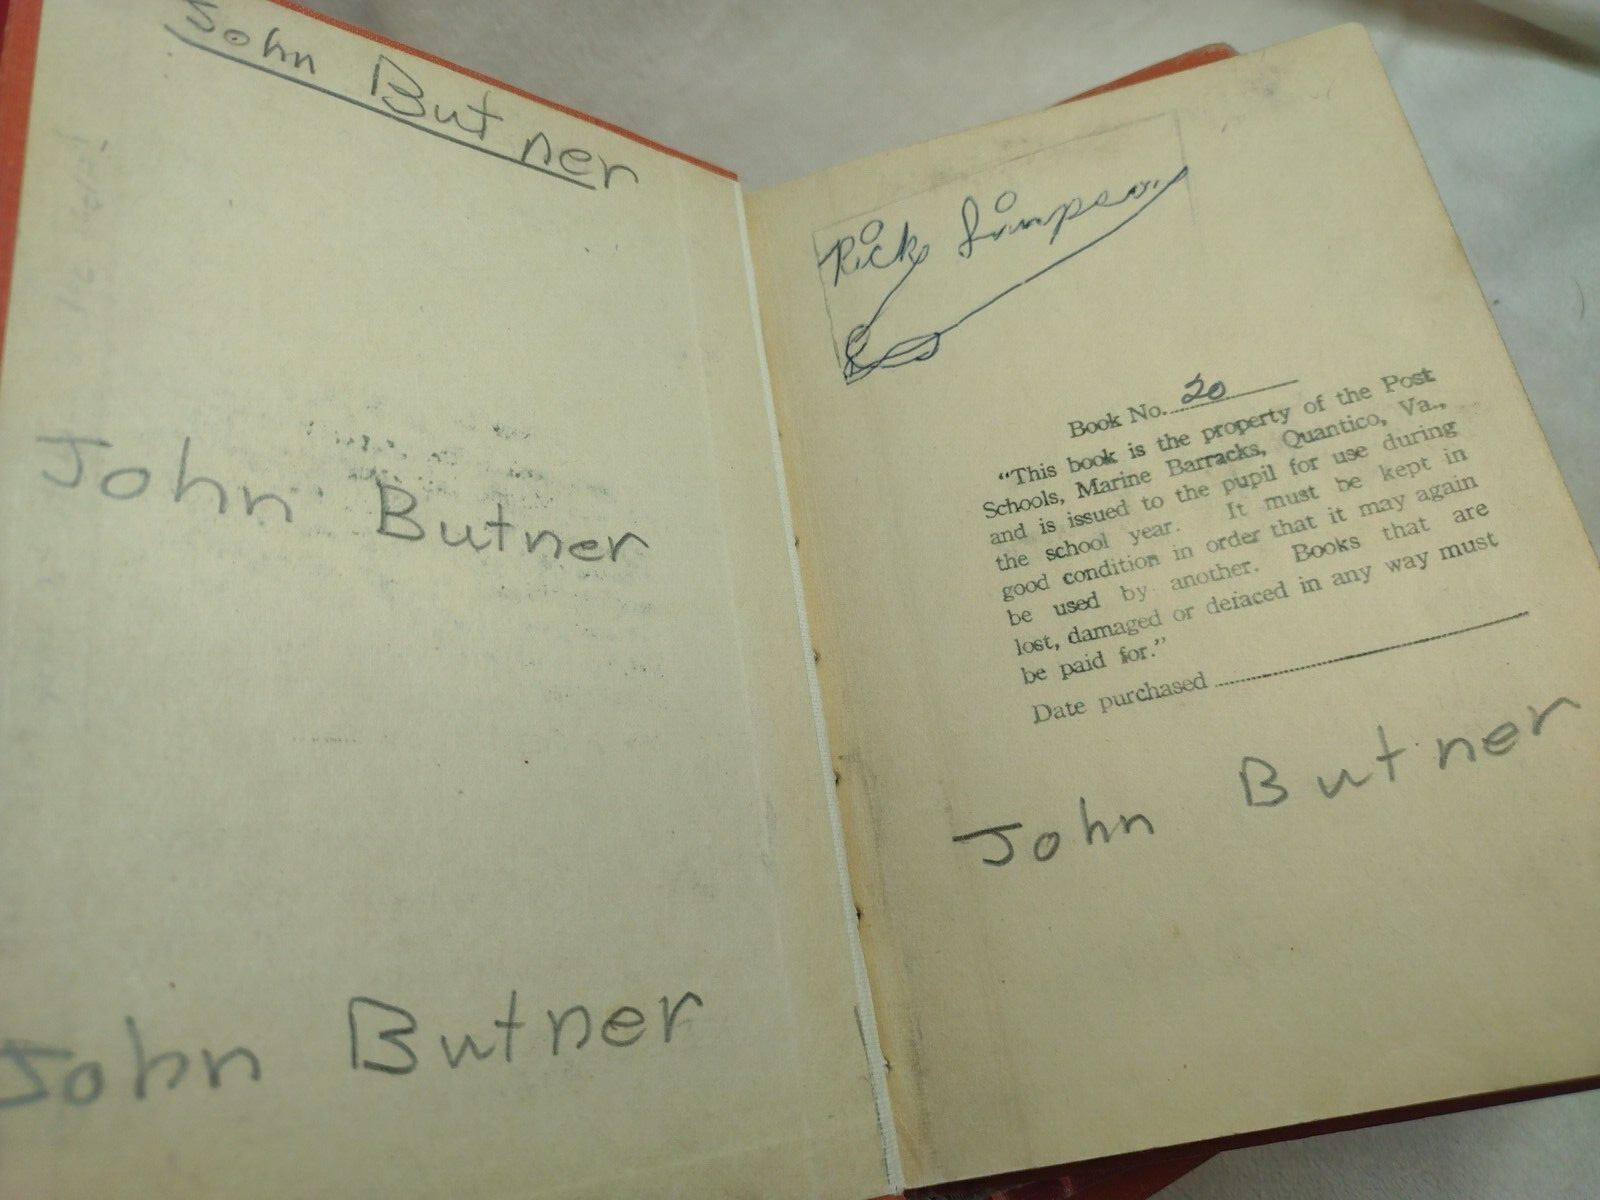 John Butner
John Butner
John Butner
Rick Simpson
Book No. 20
“This book is the property of the Post
Schools, Marine Barracks, Quantico, Va.,
and is issued to the pupil for use during
the school year. It must be kept in
good condition in order that it may again
be used by another. Books that are
lost, damaged or defaced in any way must
be paid for.”
Date purchased
John Butner